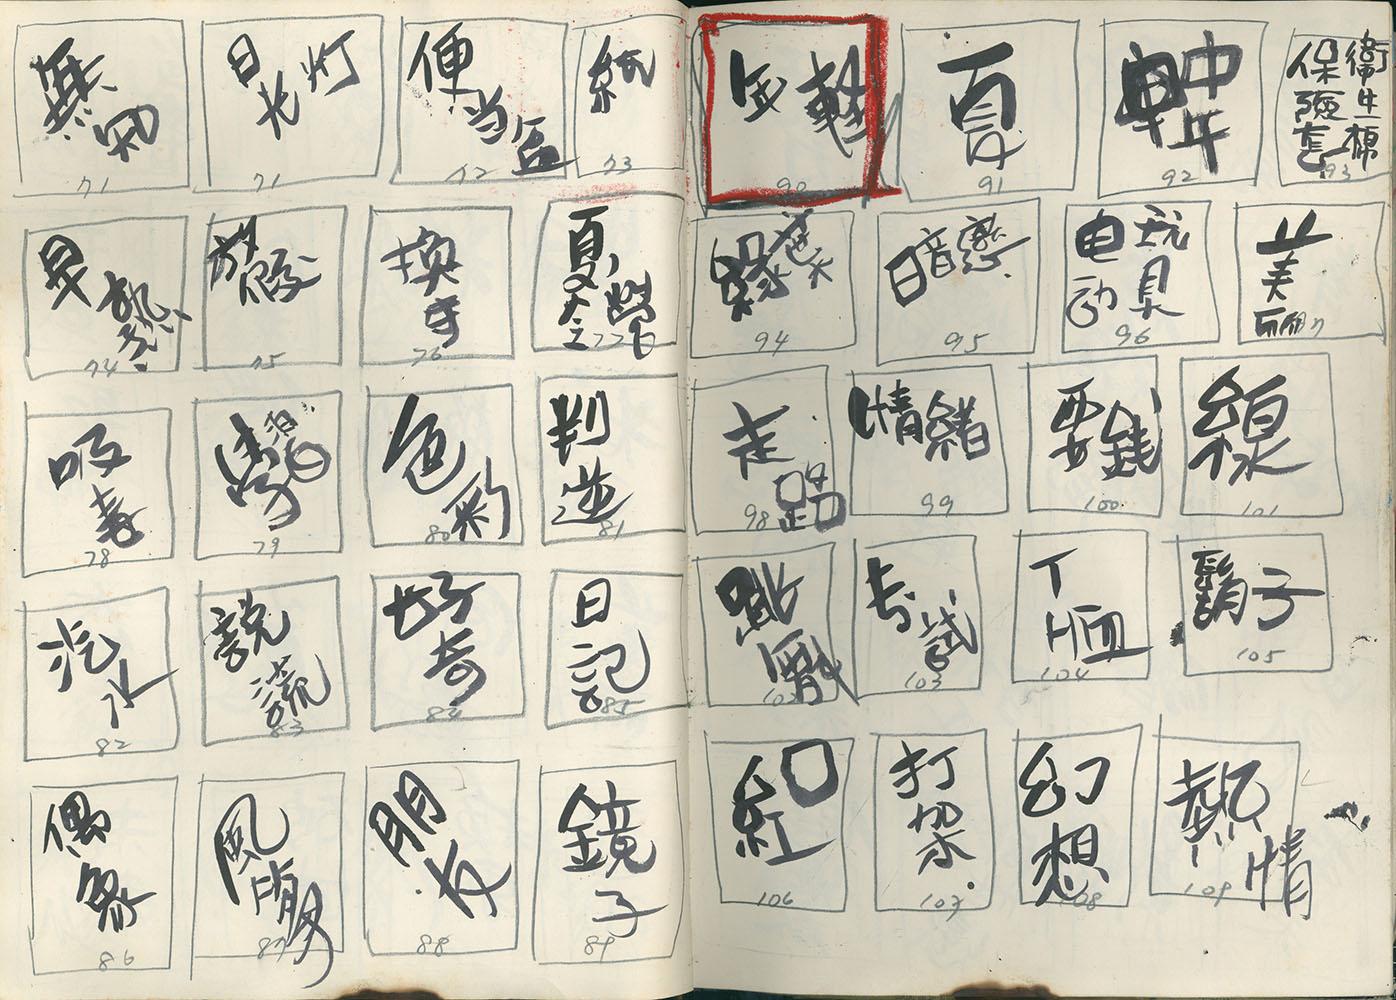 無知
71
日光灯
71
便当盒
72
紙
73
早熟
74
放假
75
換季
76
夏
77
吸毒
78
79
色彩
80
判逆
81
汽水
82
説謊
83
好奇
84
日記
85
偶像
86
風
87
朋友
88
鏡子
89
年輕
90
91
92
衛生棉
保險套
93
94
暗戀
95
电动玩具
96
美丽
97
走路
98
情緒
99
要錢
100
線
101
跳
102
考試
103
T恤
104
鬍子
105
口紅
106
打架
107
幻想
108
熱情
109